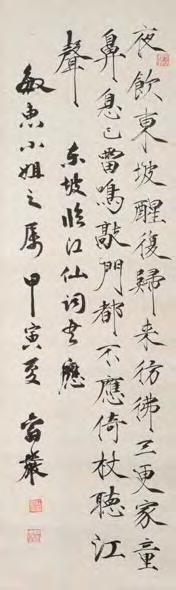 夜飲東坡醒復歸来彷彿三更家童
鼻息已雷鳴敲門都不應倚杖聽江
聲
东坡临江仙词书應
敏惠小姐之属甲寅夏富巖